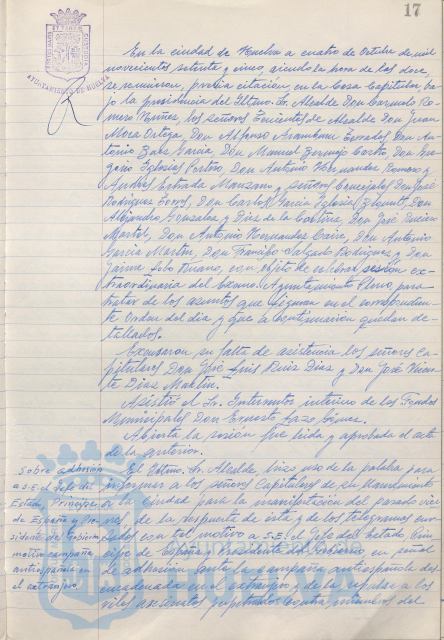 17
AYUNTAMIENTO DE HUELVA
En la ciudad de Huelva a cuatro de Octubre de mil
novecientos setenta y cinco, siendo la hora de las doce,
se reunieron, previa citación, en la Casa Capitular, ba-
jo la presidencia del Iltmo. Sr. Alcalde Don Carmelo Ro-
mero Núñez, los señores Tenientes de Alcalde Don Juan
Mora Ortega, Don Alfonso Aramburu Terrades, Don An-
tonio Baez Garcia, Don Manuel Bermejo Castro, Don Gre-
gorio Iglesias Don Antonio Hernandez Romero y
Andrés Estrada Manzano y señores Concejales Don José
Rodriguez Don Carlos Garcia Iglesias Don
Alejandro Gonzalez y Diez de la Cortina, Don José
Martel, Don Antonio Hernandez Don Antonio
Garcia Martín, Don Francisco Salgado Rodriguez y Don
Jaime con objeto de celebrar sesión ex-
traordinaria del Excmo. Ayuntamiento Pleno, para
tratar de los asuntos que figuran en el correspondien-
te Orden del día y que a continuación quedan de-
tallados.
Excusaron su falta de asistencia los señores Ca-
pitulares Don José Luis Ruiz Diaz y Don José Vicen-
te Diaz Martín.
Asistió el Sr. Interventor interino de los Fondos
Municipales Don Ernesto Lazo López.
Abierta la sesión fue leída y aprobada el acta
de la anterior.
Sobre adhesión
a S.E. el Jefe del
Estado, Príncipe
de España y Pre-
sidente del Gobierno
motivo campaña
antiespañola en
el extranjero.
El Iltmo. Sr. Alcalde hizo uso de la palabra para
informar a los señores Capitulares de su llamamiento
a la ciudad para la manifestación del pasado vier-
nes, de la respuesta de ésta y de los telegramas envi-
ados con tal motivo a S.E. el Jefe del Estado, Prín-
cipe de España y Presidente del Gobierno en señal
de adhesión ante la campaña antiespañola des-
encadenada en el extranjero y de la repulsa a los
viles asesinatos perpetrados contra miembros del
HUELVA